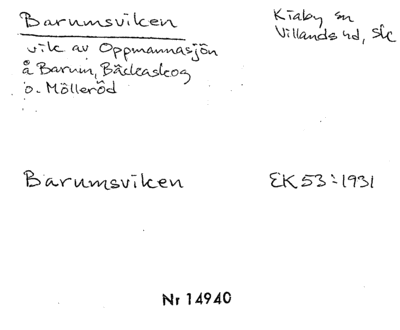 Barumsviken
Kiaby sn
Villands hd, Skåne
vik av Oppmannasjön
å Barum, Bäckaskog
o. Mölleröd
Barumsviken
EK 53:1931
Nr 14940